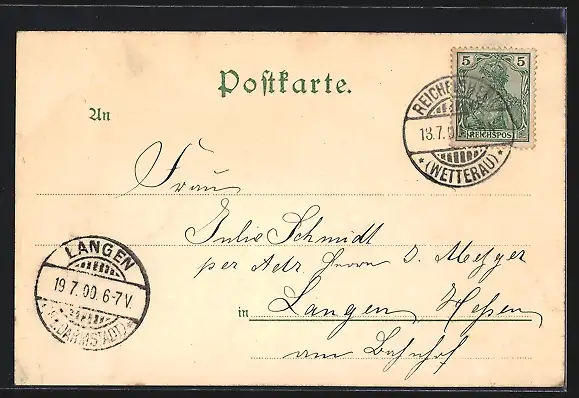 Postkarte.
5 5
REICHSPOST
REICHELSHEIM
18.7.00
*(WETTERAU)*
An
Frau
Julie Schmidt
per Adr. Herrn S. Metzger
in Langen Hessen
am Bahnhof
LANGEN
19.7.00. 6-7V.
*(BZ. DARMSTADT)*